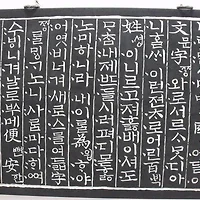 文문字ᄍᆞᆼ와로서르ᄉᆞᄆᆞᆺ디아
니ᄒᆞᆯᄊᆡ이런젼ᄎᆞ로어린百ᄇᆡᆨ
姓셩이니르고져홇배이셔도
ᄆᆞᄎᆞᆷ내제ᄠᅳ들시러펴디몯ᄒᆞᇙ
노미하니라내이ᄅᆞᆯ爲윙ᄒᆞ야
어엿비너겨새로스믈여듧字
ᄍᆞᆼᄅᆞᆯᄆᆡᇰᄀᆞ노니사ᄅᆞᆷ마다ᄒᆡᅇᅧ
수ᄫᅵ니겨날로ᄡᅮ메便뼌安ᅙᅡᆫ